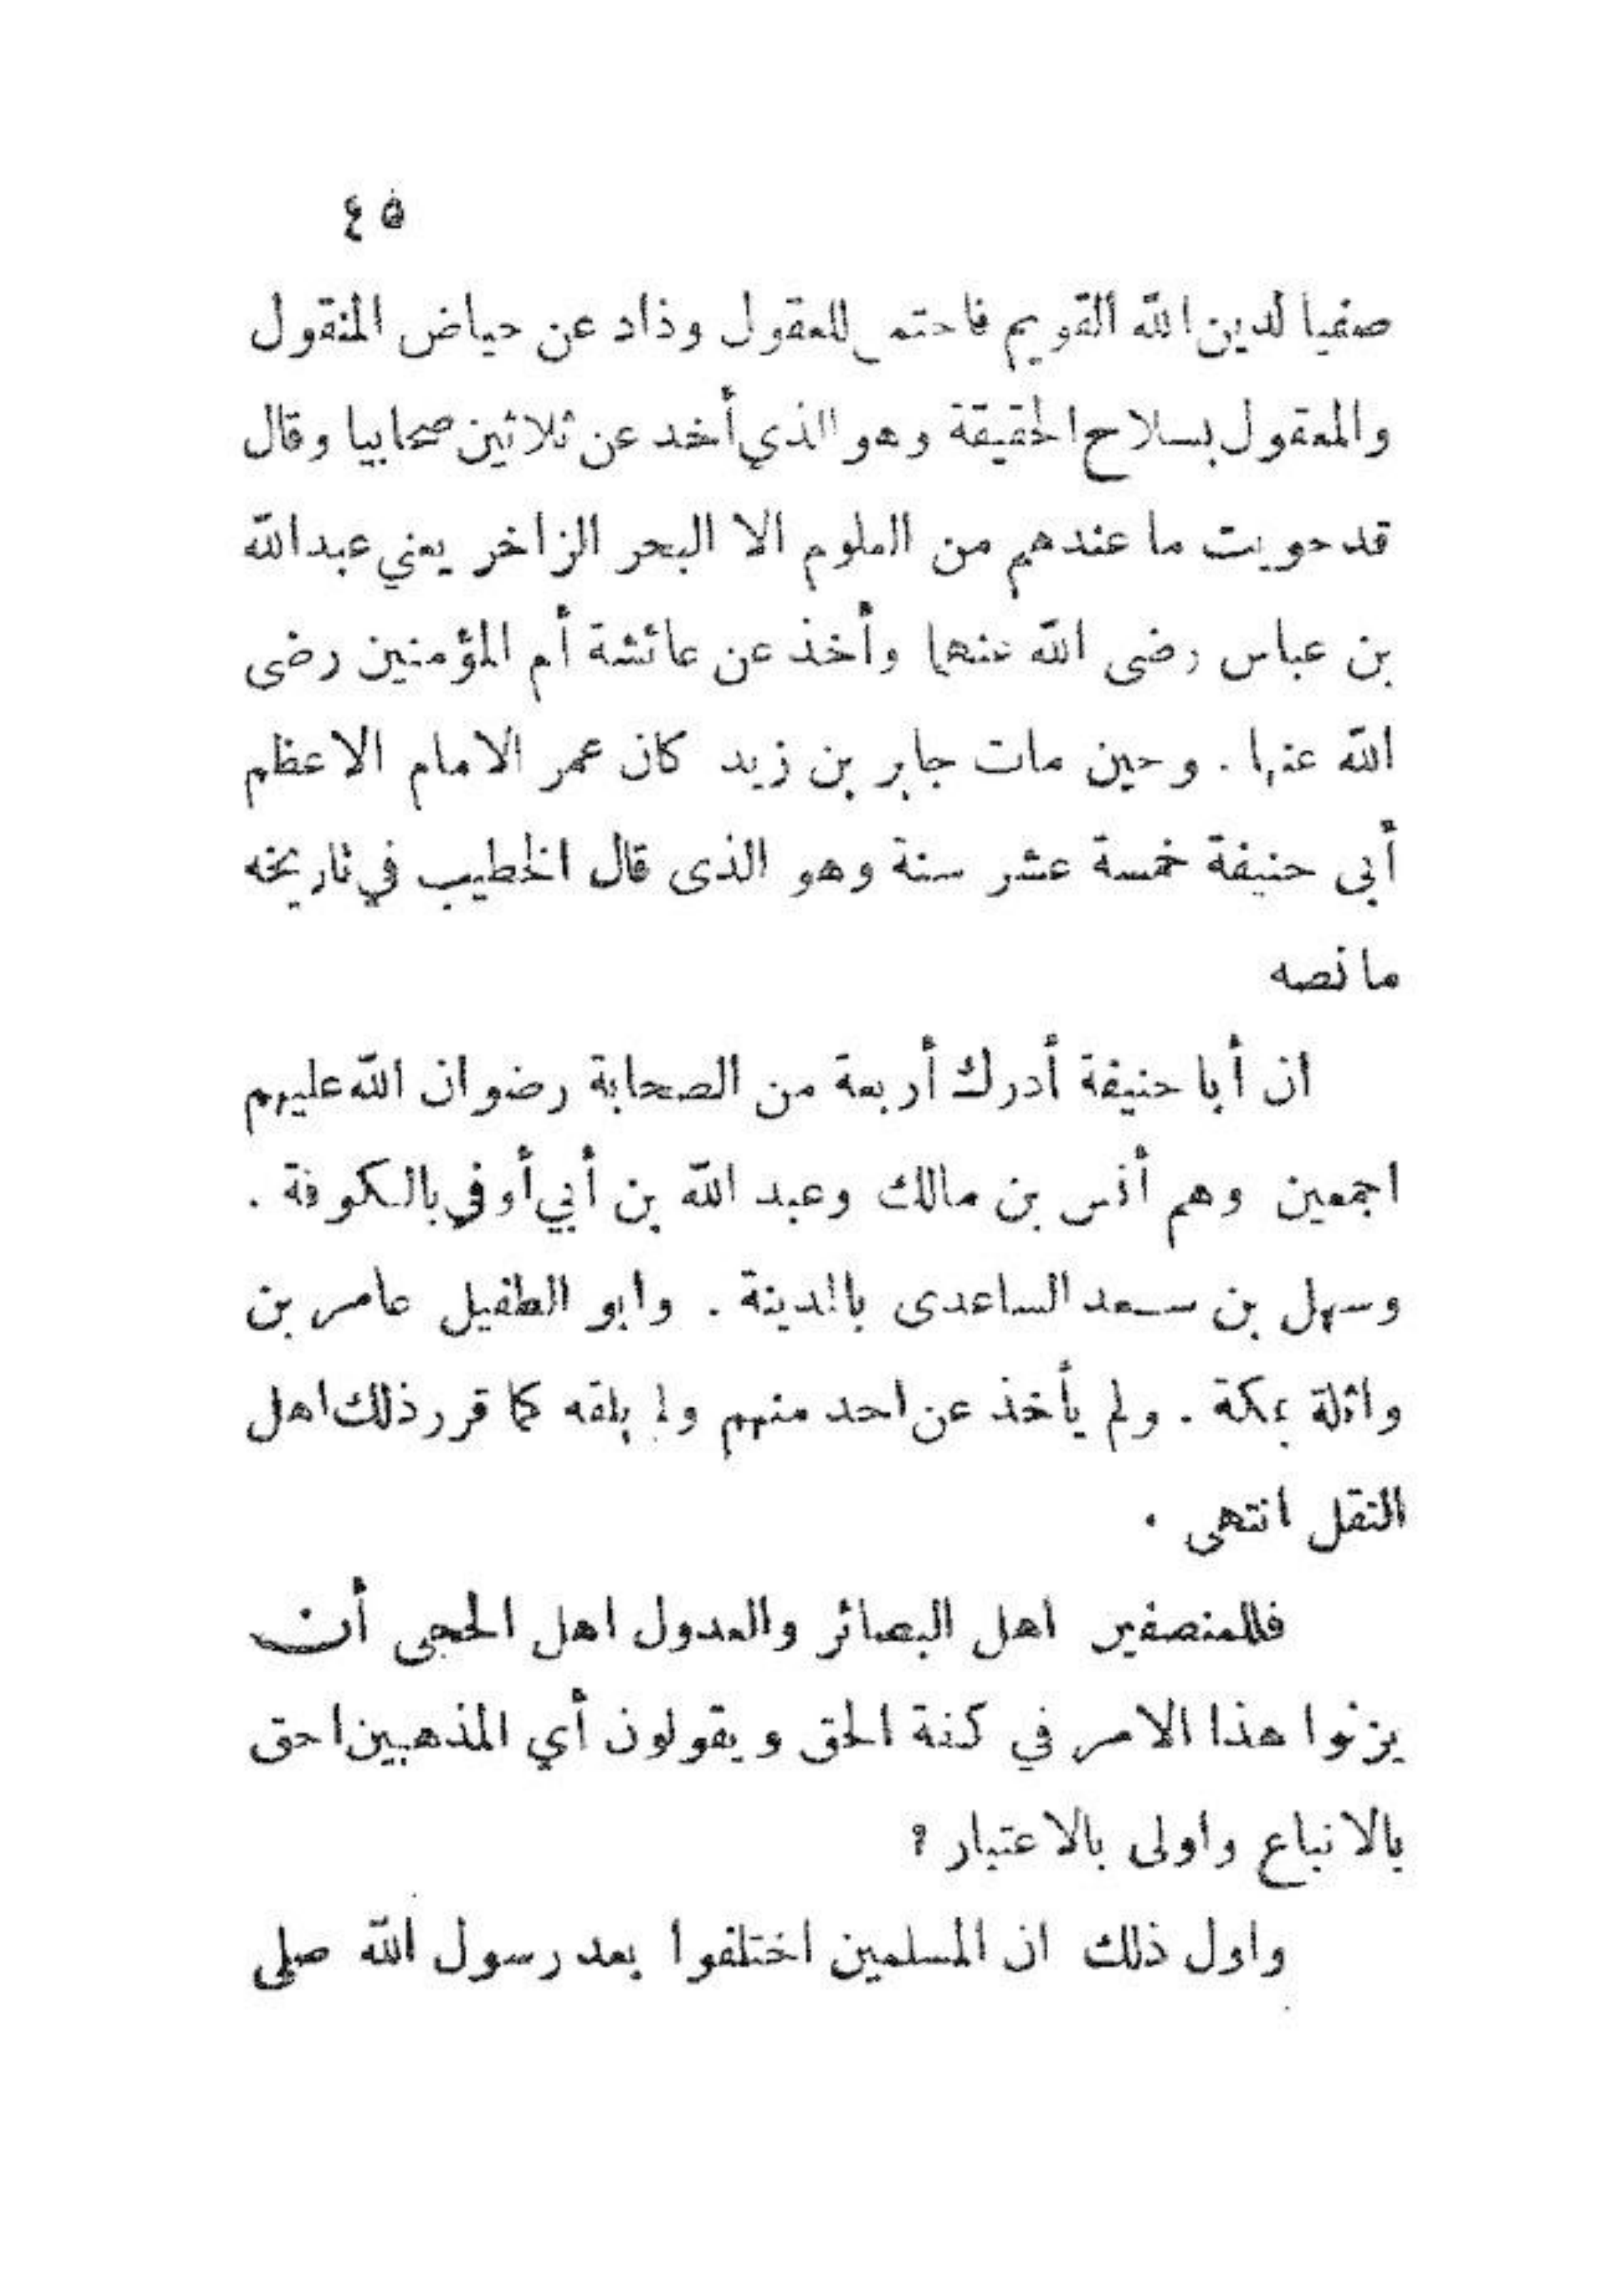 ٤٥
صفيا لدين الله القويم للعقول وذاد عن حياض المنقول
والمعقول بسلاح الحقيقة وهو الذي أخد عن ثلاثين صحابيا وقال
قد حويت ما عندهم من العلوم الا البحر الزاخر يعني عبدالله
بن عباس رضى الله عنهما وأخذ عن عائشة أم المؤمنين رضى
الله عنها . وحين مات جابر بن زيد كان عمر الامام الاعظم
أبى حنيفة خمسة عشر سنة وهو الذى قال الخطيب في تاريخه
ما نصه
ان أبا حنيفة أدرك أربعة من الصحابة رضوان الله عليهم
اجمعين وهم أنس بن مالك وعبد الله بن أبي أوفي بالكوفة .
وسهل بن سعد الساعدى بالمدينة . وابو الطفيل عامر بن
واثلة بمكة . ولم يأخذ عن احد منهم ولم يلقه كما قرر ذلك اهل
النقل انتهى .
فللمنصفين اهل البصائر والعدول اهل الحجى أن
يزنوا هذا الامر في كفة الحق ويقولون أي المذهبين احق
بالاتباع واولى بالاعتبار ؟
واول ذلك ان المسلمين اختلفوا بعد رسول الله صلى